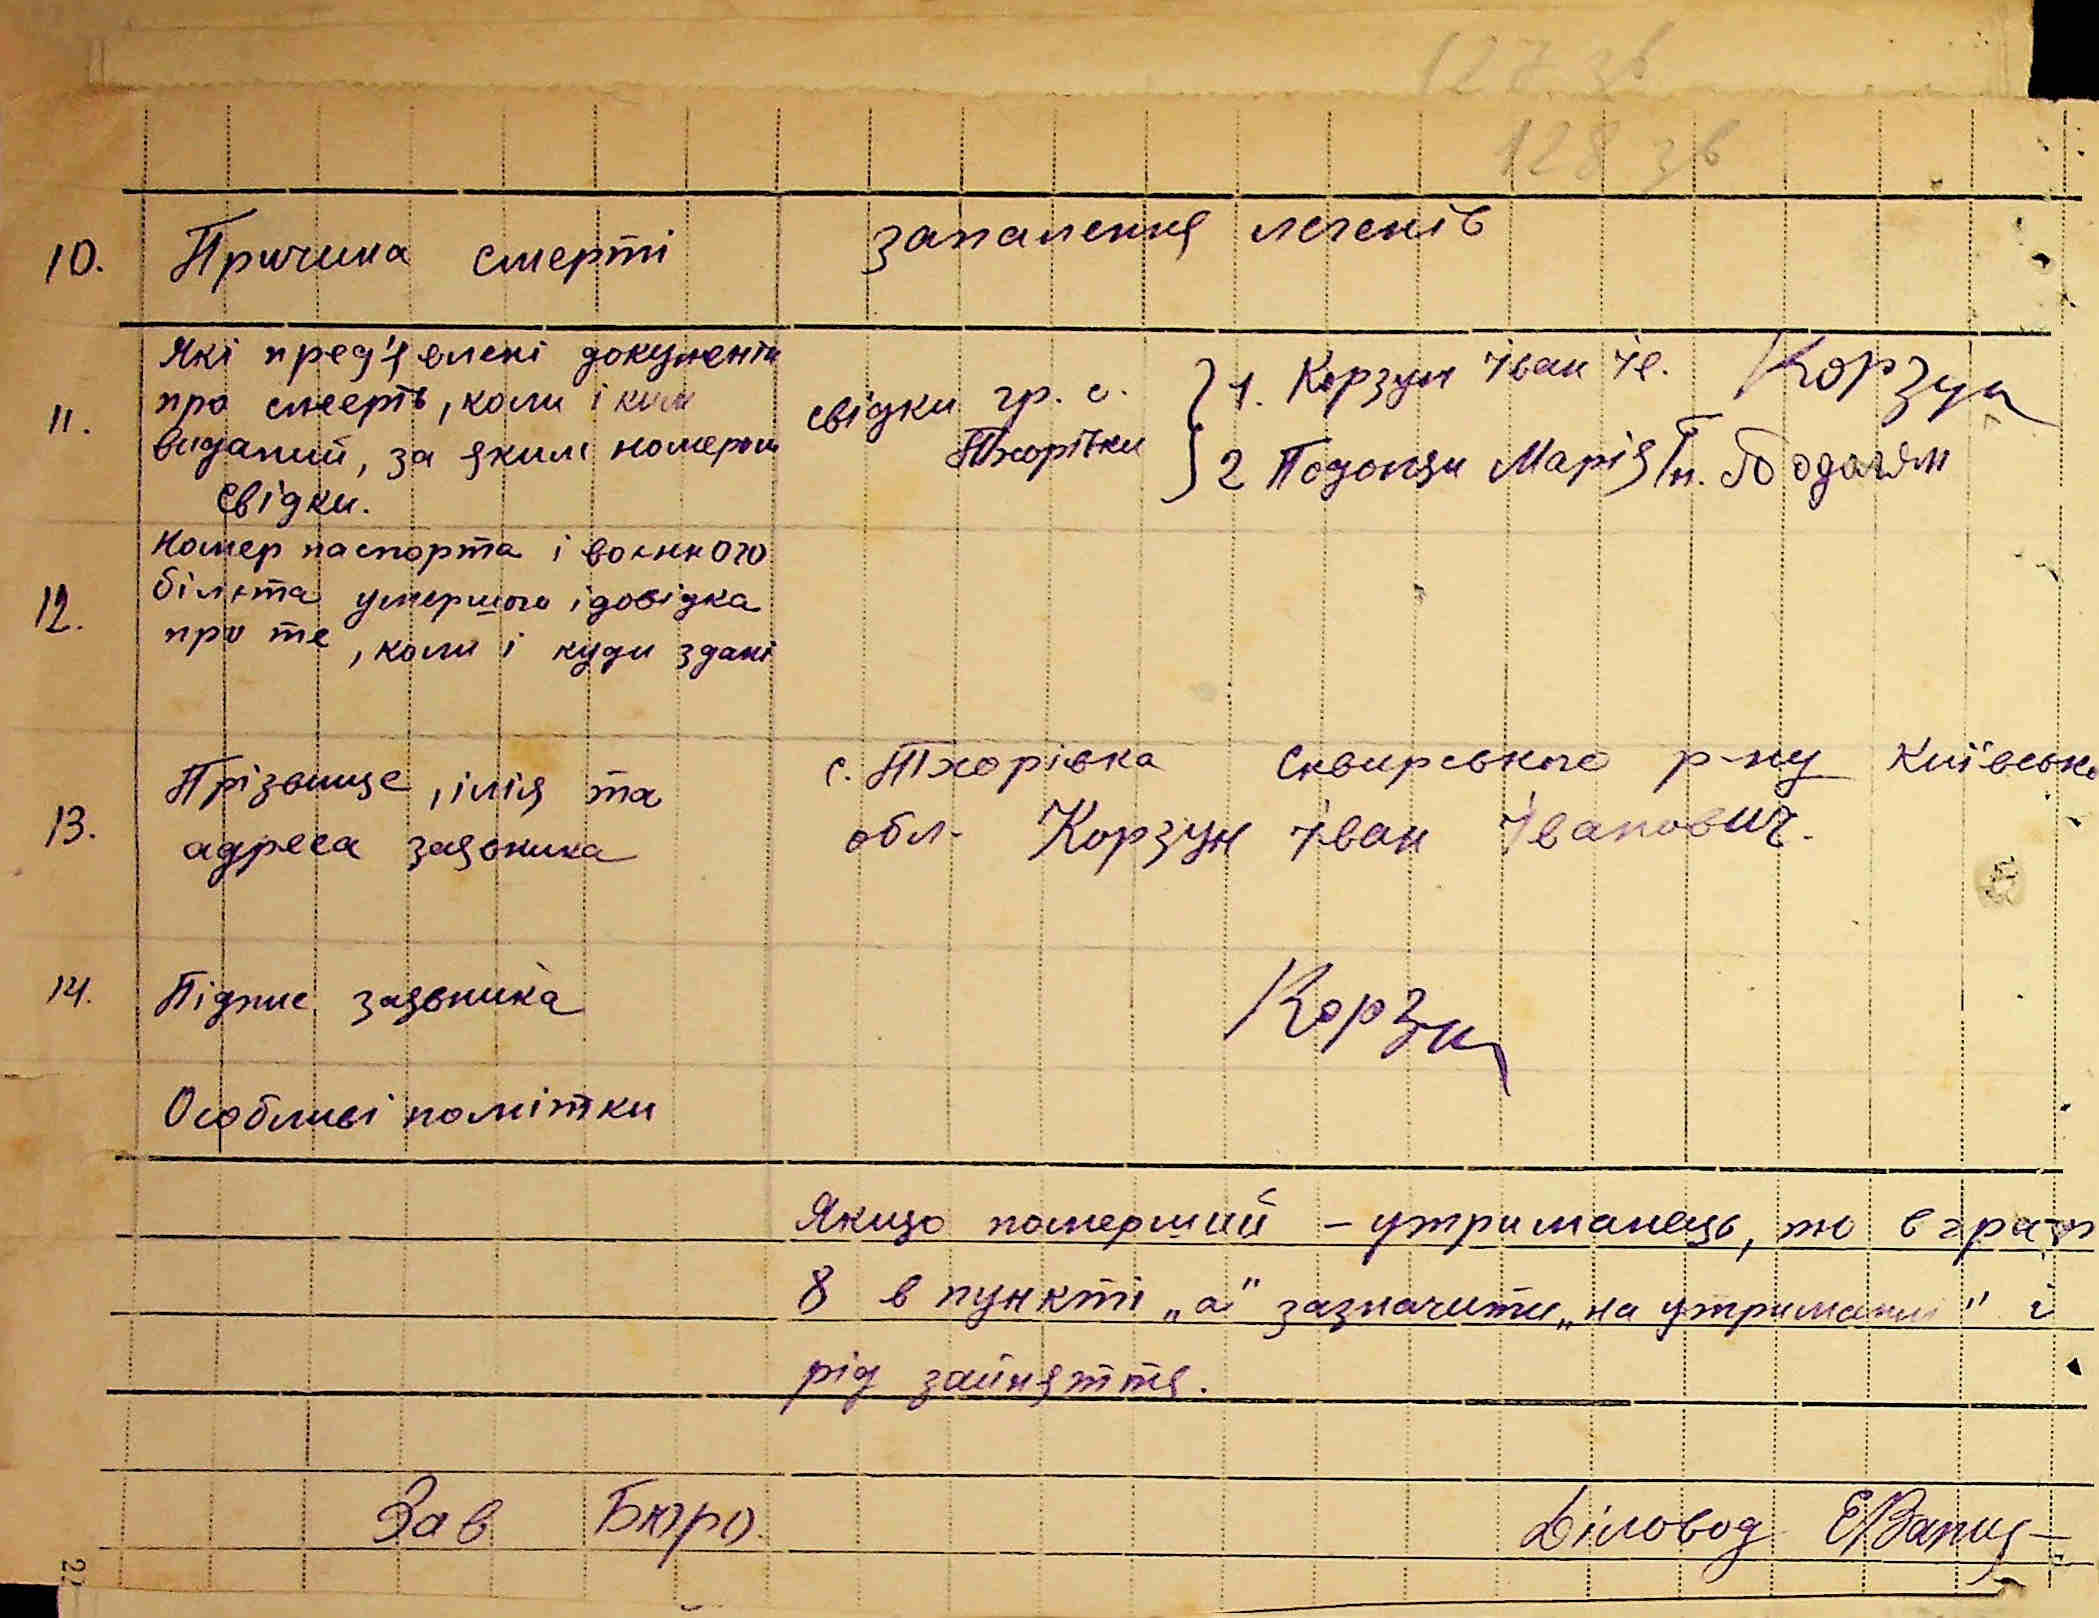 127 зв
128 зв
10. Причина смерті запалення легенів
Які пред'явлені документи
про смерть, коли і ким
11. виданий, за яким номером
свідки.
свідки гр. с.
Тхорівки
1. Корзун Іван Ів. Корзун
2 Марія
Номер паспорта і воєнного
12. білєта умершого і довідка
про те, коли і куди здані
с. Тхорівка Сквирського р-ну Київсько
13. Прізвище, імія та
адреса заявника
обл. Корзун Іван Іванович.
14. Підпис заявника Корзун
Особливі помітки
Якщо померший – утриманець, то в граф
8 в пункті „а" зазначити „на утриманні" і
рід зайняття.
Зав Бюро. Діловод